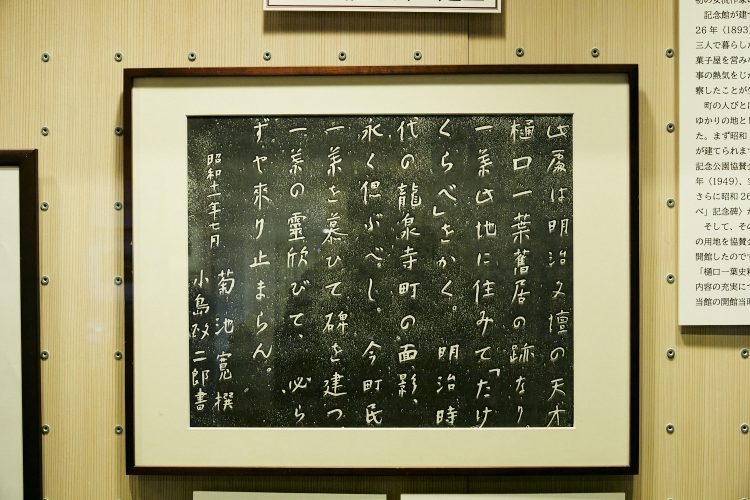 此處は明治文壇の天才
樋口一葉舊居の跡なり。
一葉此地に住みて「たけ
くらべ」をかく。明治時
代の龍泉寺町の面影、
永く偲ぶべし。今町民
一葉を慕ひて碑を建つ。
一葉の靈欣びて、必ら
ずや來り止まらん。
昭和十一年七月
菊池寛撰
小島政二郎書
記念館が建
26年（1893
三人で暮らした
菓子屋を営み
事の熱気をじ
察したことが
町の人びと
ゆかりの地と
た。まず昭和
が建てられま
記念公園協賛
年（1949）、
さらに昭和26
べ」記念碑）
そして、その
の用地を協賛
開館したので
「樋口一葉史
内容の充実に
当館の開館当